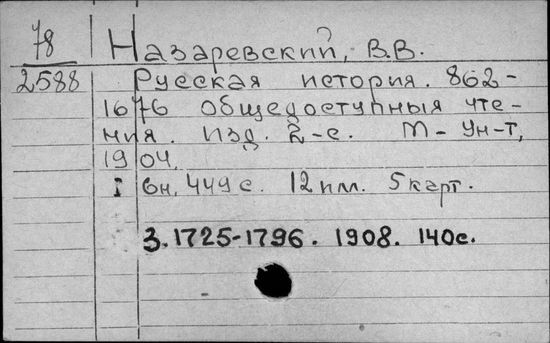 78 Назаревский, В.В.
2588 Русская история. 862-
1676 общедоступныя чте-
ния. Изд. 2-е. М- Ун-т,
1904.
I 449 с. 12 пл. 5 карт.
3. 1725-1796. 1908. 140с.